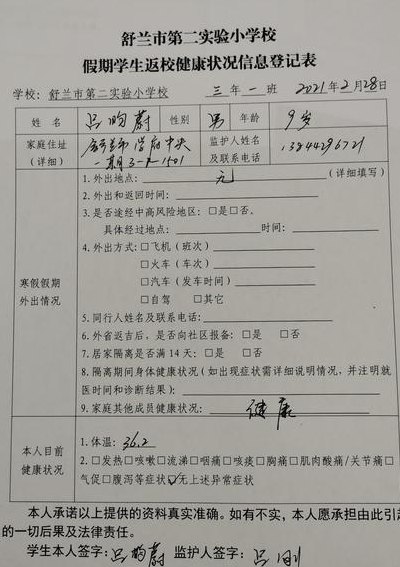 舒兰市第二实验小学校
假期学生返校健康状况信息登记表
学校：舒兰市第二实验小学校 三 年 一 班 2021年2月28日
姓名 吕昀蔚 性别 男 年龄 9岁
家庭住址（详细） 学府中央 二期3-2-1501 监护人姓名及联系电话 13844296721
寒假假期外出情况
1.外出地点： 无 （详细填写）
2.外出和返回时间：
3.是否途经中高风险地区：□是□否、
具体经过地点： 时间：
4.外出方式：□飞机（班次）
□火车（车次）
□汽车（发车时间）
□自驾 □其它
5.同行人姓名及联系电话：
6.外省返吉后，是否向社区报备：□是 □否
7.居家隔离是否满 14 天：□是 □否
8.隔离期间身体健康状况（如出现症状需详细说明情况，并注明就
医时间和诊断结果）：
9.家庭其他成员健康状况： 健康
本人目前健康状况
1.体温：36.2
2.□发热□咳嗽□流涕□咽痛□咳痰□胸痛□肌肉酸痛/关节痛□
气促□腹泻等症状☑无上述异常症状
本人承诺以上提供的资料真实准确。如有不实，本人愿承担由此引起
的一切后果及法律责任。
学生本人签字：吕昀蔚 监护人签字：吕刚